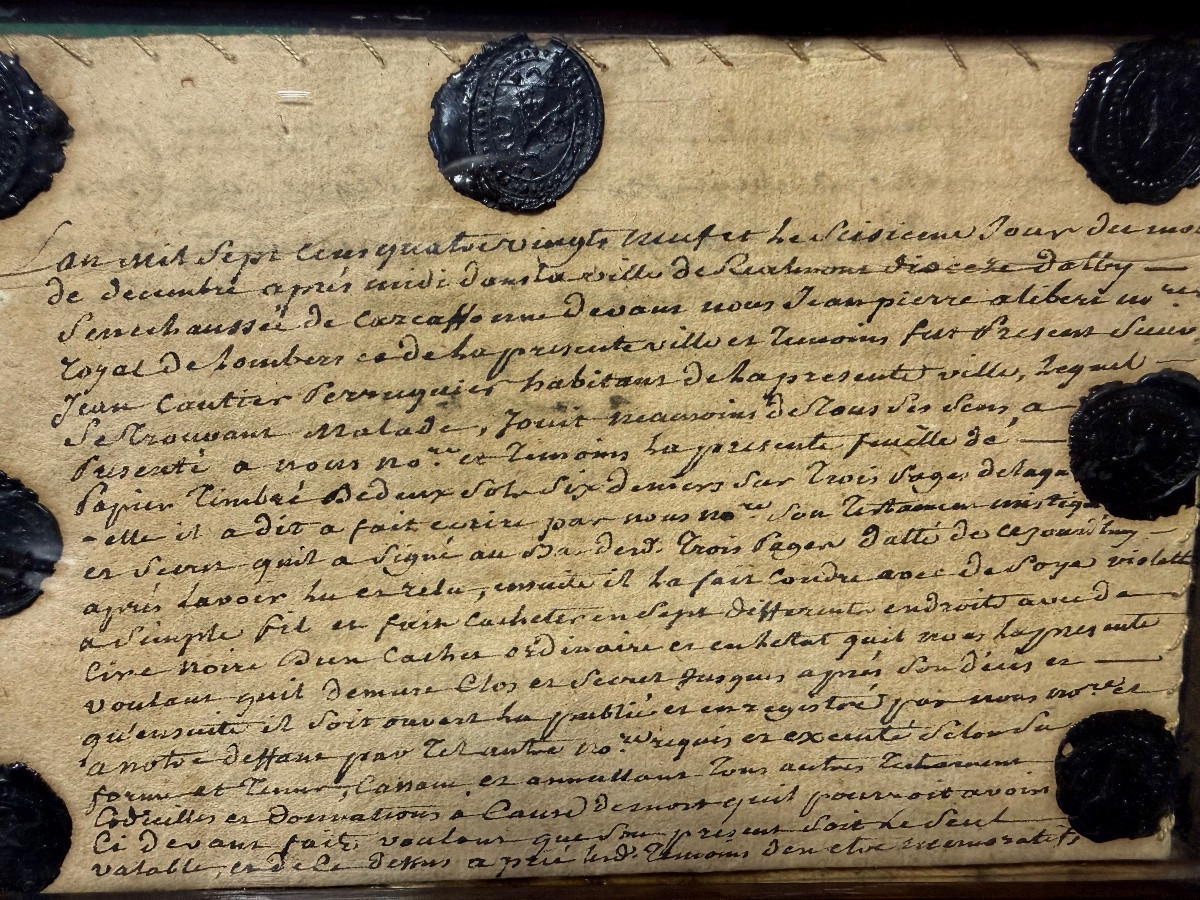 Lan mil sept cens quatre vingts neuf et le seisieme Jour du mois
de decembre aprés midi dans la ville de Realmont dioceze dalby
senechaussée de carcassonne devant nous Jean pierre aliberi no.re
royal de lombers ce de la presente ville et temoins fut present sieur
Jean Cautier Perruquier habitant de la presente ville, lequel
se trouvant malade, Jouit neamoins de tous ses sens, a
Presenté a nous no.re et temoins la presente feuille de
Papier timbré de deux sols six deniers sur trois pages de laqu
-elle il a dit a fait ecrire par nous no.re son testamen mistiq
et secret quil a signé au bas desd. trois pages datté de cejourdhuy
aprés lavoir lu et relu, ensuite il la fait coudre avec de soye violette
a simple fil et fait cacheter en sept differents endroits avec de
cire noire dun cachet ordinaire et en letat quil nous la presente
voulant quil demure clos et secret Jusques aprés son décés et
qu'ensuite il soit ouvert lu publié et enregistré par nous no.re et
a notre deffaut par tel autre no.re requis et executé selon sa
forme et teneur, cassant et annullant tous autres testament
Codicilles et donnations a Cause de mort quil pourroit avoir
Ci devant fait, voulant que son present soit le seul
valable, et de ce dessus a prié lesd. temoins den etre memoratifs